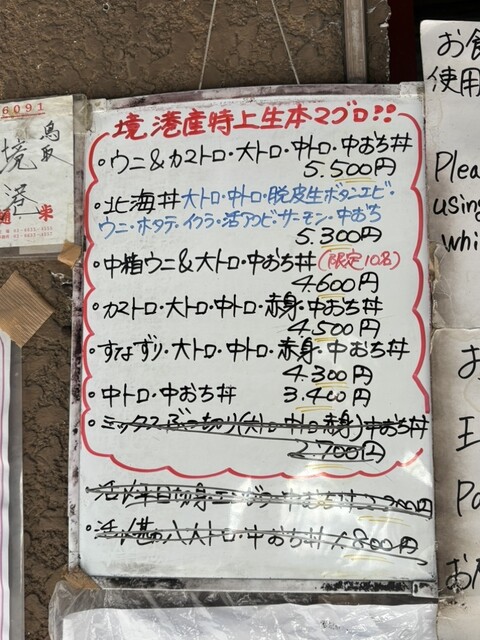 6091
鳥取
境
港
境港産特上生本マグロ!!
・ウニ&カマトロ・大トロ・中トロ・中おち丼
5.500円
・北海丼大トロ・中トロ・脱皮生ボタンエビ・
ウニ・ホタテ・イクラ・活アワビ・サーモン・中おち
5.300円
・中箱ウニ&大トロ・中おち丼(限定10名)
4.600円
・カマトロ・大トロ・中トロ・赤身・中おち丼
4.500円
・すなずり・大トロ・中トロ・赤身・中おち丼
4.300円
・中トロ・中おち丼 3.400円
・ミックスぶつ切り(大トロ中トロ赤身)中おち丼
2.700円
大トロ・中おち丼 1.800円
お食
使用
Plea
using
whi
お
王
Pa
お